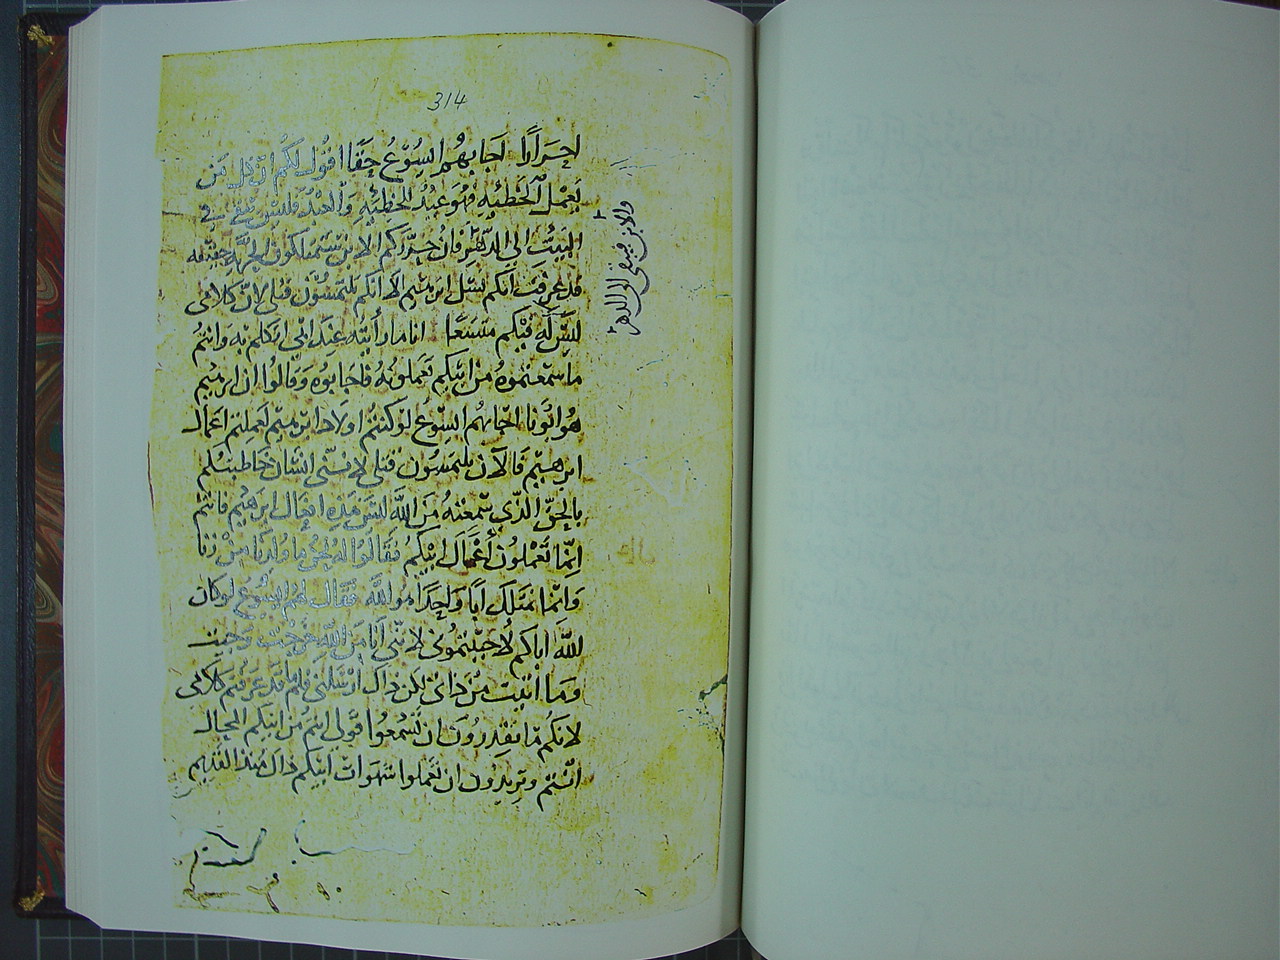 314
احرارا اجابهم ايسوع حقا اقول لكم ان كل من
يعمل الخطيه فهو عبد الخطيه والعبد فليس يبقى في
البيت الى الدهر فان حرركم الابن تستملكون الحريه حقيقه
قد عرفت انكم نسل ابرهيم الا انكم تلتمسون قتلى لان كلامى
ليس له فيكم متسعا انا ما رأيته عند ابى اتكلم به وانتم
ما سمعتموه من ابيكم تعملونه فاجابوه وقالوا ان ابرهيم
هو ابونا اجابهم ايسوع لو كنتم اولاد ابرهيم لعملتم اعمال
ابرهيم فالآن تلتمسون قتلى لاننى انسان خاطبتكم
بالحق الذي سمعته من الله ليس هذه افعال ابرهيم فانتم
انما تعملون أعمال ابيكم فقالوا له نحن ما ولدنا من زنا
وانما نمتلك ابا واحدا هو الله فقال لهم ايسوع لو كان
لله اباكم لأحببتمونى لاننى أنا من الله خرجت وجيت
وما أتيت من ذاتى لكن ذاك ارسلنى فلم ما قد عرفتم كلامى
لانكم ما تقدرون ان تسمعوا قولى انتم من ابيكم المحال
انتم وتريدون ان تعملوا شهوات ابيكم ذاك منذ القديم
والابن فيبقى الى الدهر